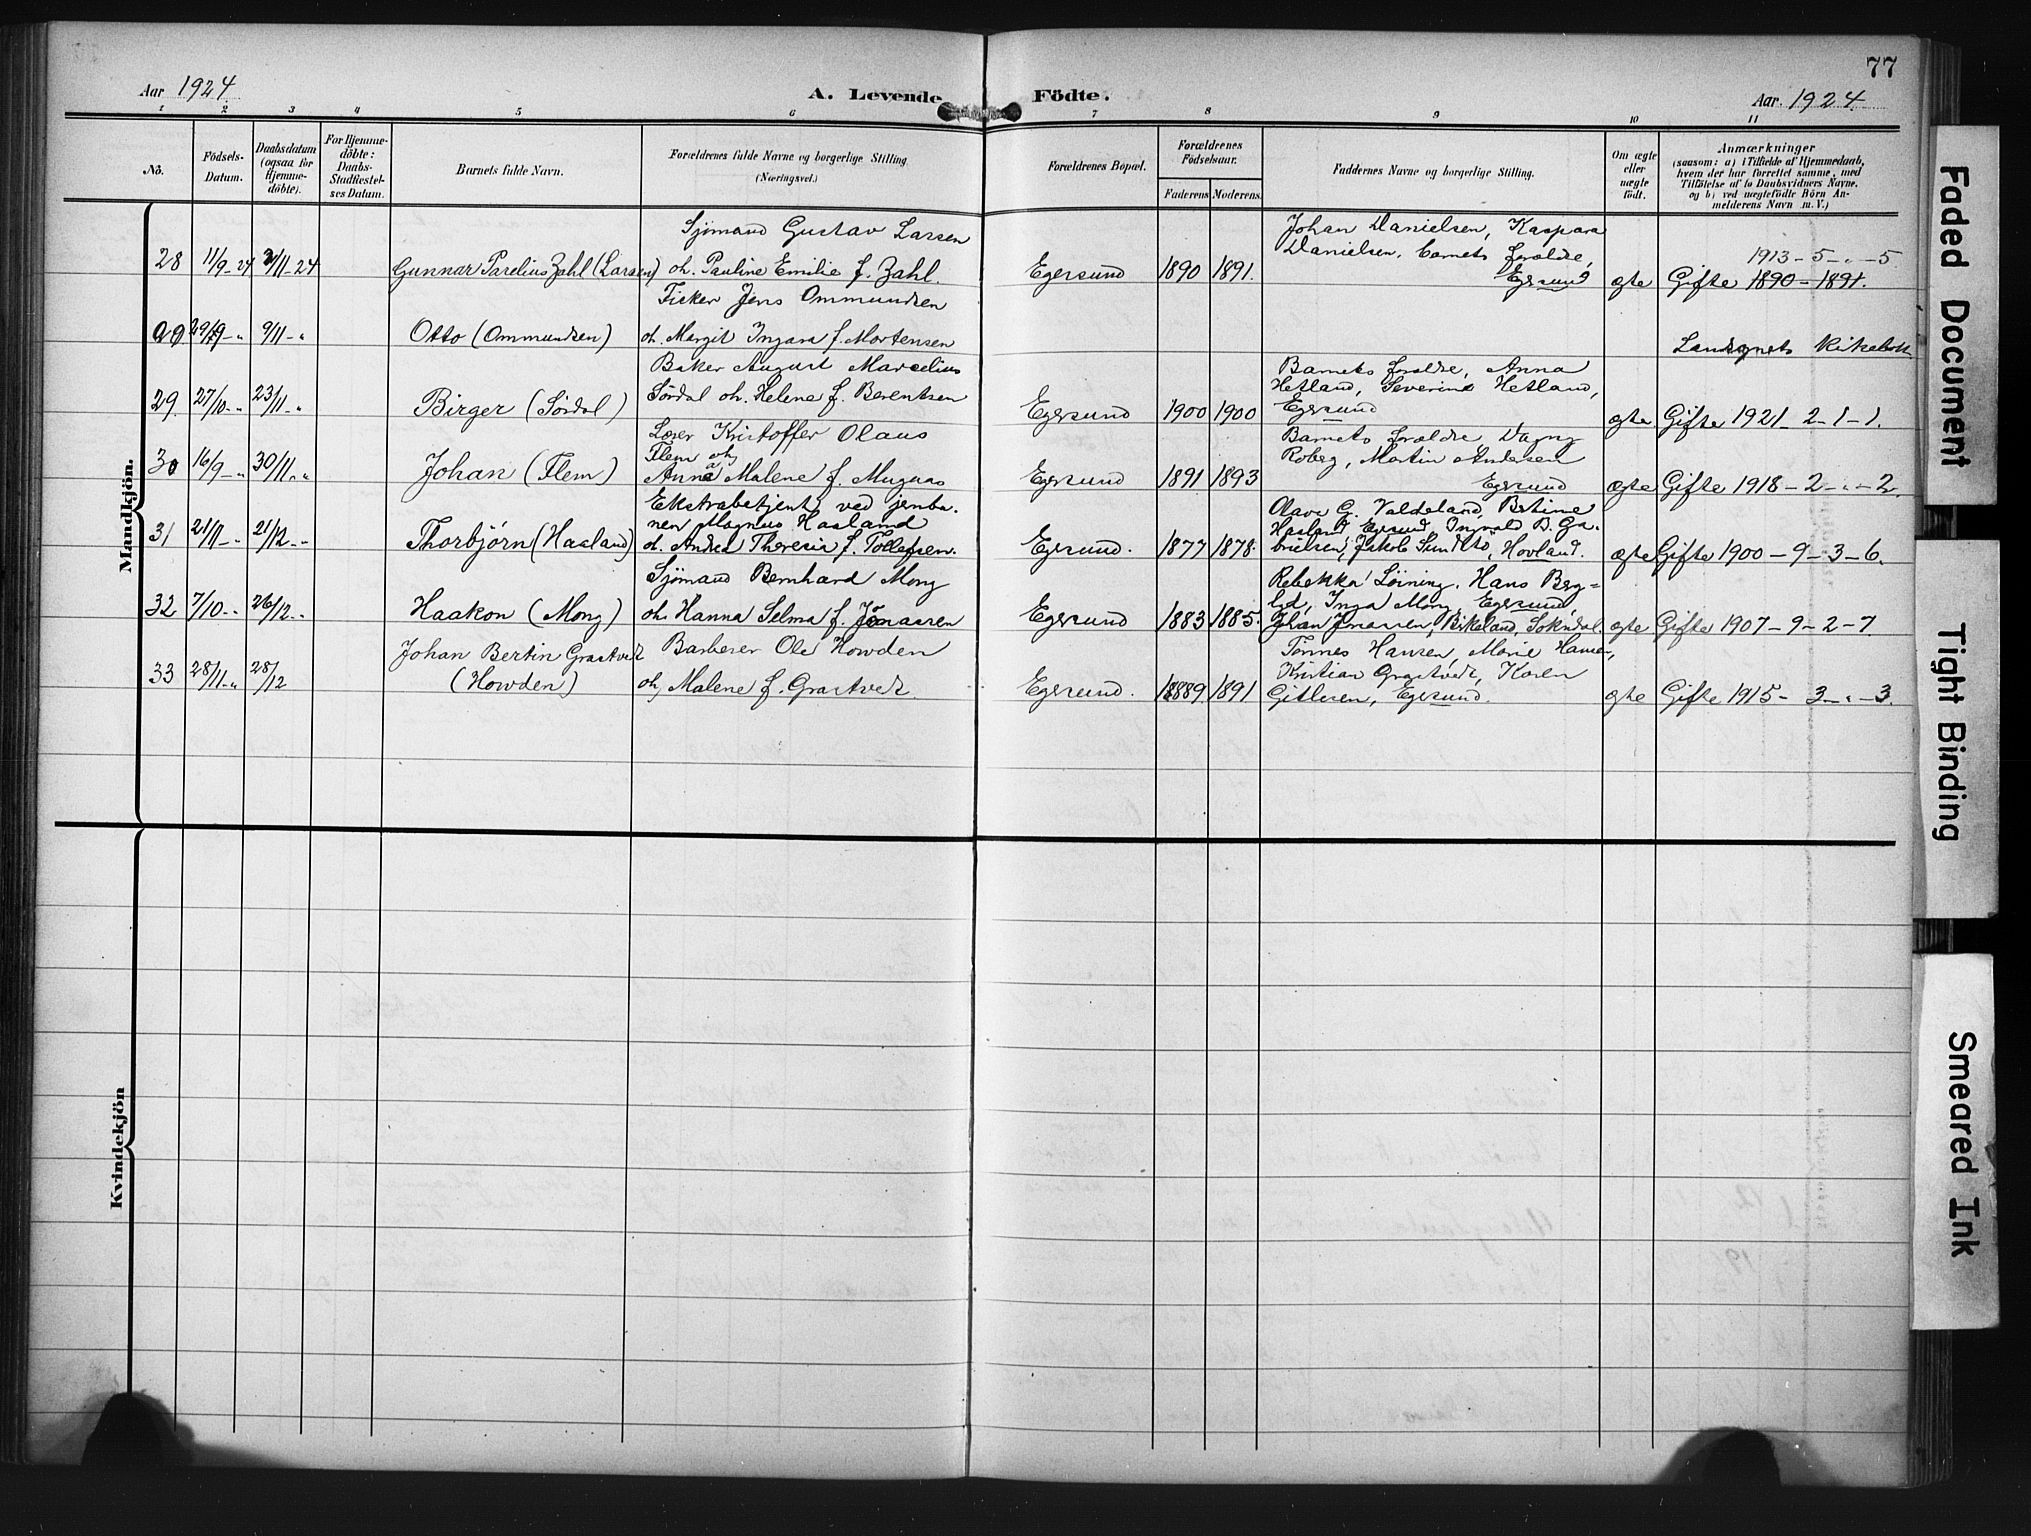 77
Aar 1924
A. Levende Födte.
Aar 1924
1 2 3 4 5 6 7 8 9 10 11
No.
Födsels-
Datum.
Daabsdatum
(ogsaa for
Hjemme-
döbte).
For Hjemme-
döbte:
Daabs-
Stadfæstel-
ses Datum.
Barnets fulde Navn.
Forældrenes fulde Navne og borgerlige Stilling.
(Næringsvei.)
Forældrenes Bopæl.
Forældrenes
Födselsaar.
Faderens Moderens
Faddernes Navne og borgerlige Stilling.
Om ægte
eller
uægte
født.
Anmærkninger
(saasom: a) i Tilfælde af Hjemmedaab,
hvem der har forrettet samme, med
Tilföielse af to Daabsvidners Navne,
og b) ved uægtefödte Börn An-
melderens Navn m. V.)
Mandkjön.
28 11/9-24 2/11-24 Gunnar Parelius Zahl (Larsen)
Sjömand Gustav Larsen
oh. Pauline Emilie f. Zahl.
Egersund 1890 1891.
Johan Danielsen, Kaspara
Danielsen, barnets foreldre,
Egersund
ægte
1913-5-"-5
Gifte 1890-1891.
29/9-" 9/11-" Otto (Ommundsen)
Fisker Jens Ommundsen
oh. Margit Ingara f. Mortensen
Landsognets Kirkebok
29. 27/10-" 23/11-" Birger (Sördal)
Baker August Marselius
Sördal oh. Helene f. Berentsen
Egersund 1900 1900
Barnets foreldre, Anna
Hetland, Severine Hetland,
Egersund
ægte. Gifte 1921-2-1-1.
30 16/9-" 30/11-" Johan (Flem)
Kristoffer Olaus
Flem oh
Anna Malene f. Mugaas
Egersund 1891 1893
Barnets foreldre, Dagny
Roberg, Martin Andersen
Egersund
ægte Gifte 1918-2-"-2.
31 21/12-" Thorbjörn (Haaland)
Ekstrabetjent ved jernba-
nen Magnus Haaland
Andrea Theresia f. Tollefsen.
Egersund. 1877 1878.
Olava G. Valdeland, Bertine
Haaland, Egersund, Ingvald B. Ga-
brielsen, Jakob Sundtsö, Hovland.
ægte Gifte 1900-9-3-6.
32 7/10-" 26/12-" Haakon (Mong)
Sjömand Bernhard Mong
oh. Hanna Selma f. Jonassen
Egersund 1883 1885.
Rebekka Löining, Hans Berg-
lid, Inga Mong, Egersund,
Jonassen, Birkeland, Sokndal.
ægte Gifte 1907-9-2-7.
33 28/11-" 28/12
Johan Bertin Grastvet
(Howden)
Barberer Ole Howden
oh. Malene f. Grastvet
Egersund. 1889. 1891
Tönnes Hansen, Marie Hansen,
Kristian Grastvedt, Karen
Gitlesen, Egersund.
ægte Gifte 1915-3-"-3.
Kvindekjön
Faded Document
Tight Binding
Smeared Ink